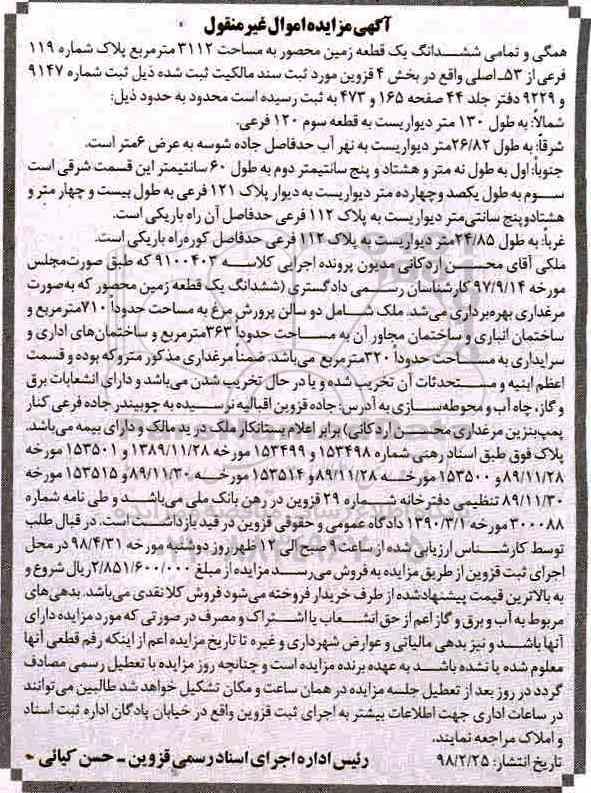 آگهی مزایده اموال غیر منقول
همگی و تمامی ششدانگ یک قطعه زمین محصور به مساحت ۳۱۱۲ مترمربع پلاک شماره ۱۱۹
فرعی از ۵۳ـ اصلی واقع در بخش ۴ قزوین مورد ثبت سند مالکیت ثبت شده ذیل ثبت شماره ۹۱۴۷
و ۹۲۲۹ دفتر جلد ۴۴ صفحه ۱۶۵ و ۴۷۳ به ثبت رسیده است محدود به حدود ذیل:
شمالاً: به طول ۱۳۰ متر دیواریست به قطعه سوم ۱۲۰ فرعی.
شرقاً: به طول ۲۶/۸۲متر دیواریست به نهر آب حدفاصل جاده شوسه به عرض ۶متر است.
جنوباً: اول به طول نه متر و هشتاد و پنج سانتیمتر دوم به طول ۶۰ سانتیمتر این قسمت شرقی است
سوم به طول یکصد وچهارده متر دیواریست به دیوار پلاک ۱۲۱ فرعی به طول بیست و چهار متر و
هشتادوپنج سانتی‌متر دیواریست به پلاک ۱۱۲ فرعی حدفاصل آن راه باریکی است.
غرباً: به طول ۲۴/۸۵متر دیواریست به پلاک ۱۱۲ فرعی حدفاصل کوره‌راه باریکی است.
ملکی آقای محسن اردکانی مدیون پرونده اجرایی کلاسه ۹۱۰۰۴۰۳ که طبق صورت‌مجلس
مورخه ۹۷/۹/۱۴ کارشناسان رسمی دادگستری (ششدانگ یک قطعه زمین محصور که به‌صورت
مرغداری بهره‌برداری می‌شد. ملک شامل دو سالن پرورش مرغ به مساحت حدوداً ۷۱۰مترمربع و
ساختمان انباری و ساختمان مجاور آن به مساحت حدوداً ۳۶۳مترمربع و ساختمان‌های اداری و
سرایداری به مساحت حدوداً ۳۲۰مترمربع می‌باشد. ضمناً مرغداری مذکور متروکه بوده و قسمت
اعظم ابنیه و مستحدثات آن تخریب شده و یا در حال تخریب شدن می‌باشد و دارای انشعابات برق
و گاز، چاه آب و محوطه‌سازی به آدرس: جاده قزوین اقبالیه نرسیده به چوبیندر جاده فرعی کنار
پمپ‌بنزین مرغداری محسن اردکانی) برابر اعلام بستانکار ملک در ید مالک و دارای بیمه می‌باشد.
پلاک فوق طبق اسناد رهنی شماره ۱۵۳۴۹۸ و ۱۵۳۴۹۹ مورخه ۱۳۸۹/۱۱/۲۸ و ۱۵۳۵۰۱ مورخه
۸۹/۱۱/۲۸ و ۱۵۳۵۰۰ مورخه ۸۹/۱۱/۲۸و ۱۵۳۵۱۴ مورخه ۸۹/۱۱/۳۰ و ۱۵۳۵۱۵ مورخه
۸۹/۱۱/۳۰ تنظیمی دفترخانه شماره ۲۹ قزوین در رهن بانک ملی می‌باشد و طی نامه شماره
۳۰۰۰۸۸ مورخه ۱۳۹۰/۳/۱ دادگاه عمومی و حقوقی قزوین در قید بازداشت است. در قبال طلب
توسط کارشناس ارزیابی شده از ساعت ۹ صبح الی ۱۲ ظهر روز دوشنبه مورخه ۹۸/۴/۳۱ در محل
اجرای ثبت قزوین از طریق مزایده به فروش می‌رسد مزایده از مبلغ ۲/۸۵۱/۶۰۰/۰۰۰ریال شروع و
به بالاترین قیمت پیشنهادشده از طرف خریدار فروخته می‌شود فروش کلا نقدی می‌باشد. بدهی‌های
مربوط به آب و برق و گاز اعم از حق انشعاب یا اشتراک و مصرف در صورتی که مورد مزایده دارای
آنها باشد و نیز بدهی مالیاتی و عوارض شهرداری و غیره تا تاریخ مزایده اعم از اینکه رقم قطعی آنها
معلوم شده یا نشده باشد به عهده برنده مزایده است و چنانچه روز مزایده با تعطیل رسمی مصادف
گردد در روز بعد از تعطیل جلسه مزایده در همان ساعت و مکان تشکیل خواهد شد طالبین می‌توانند
در ساعات اداری جهت اطلاعات بیشتر به اجرای ثبت قزوین واقع در خیابان پادگان اداره ثبت اسناد
و املاک مراجعه نمایند.
تاریخ انتشار: ۹۸/۲/۲۵
رئیس اداره اجرای اسناد رسمی قزوین ـ حسن کیائی